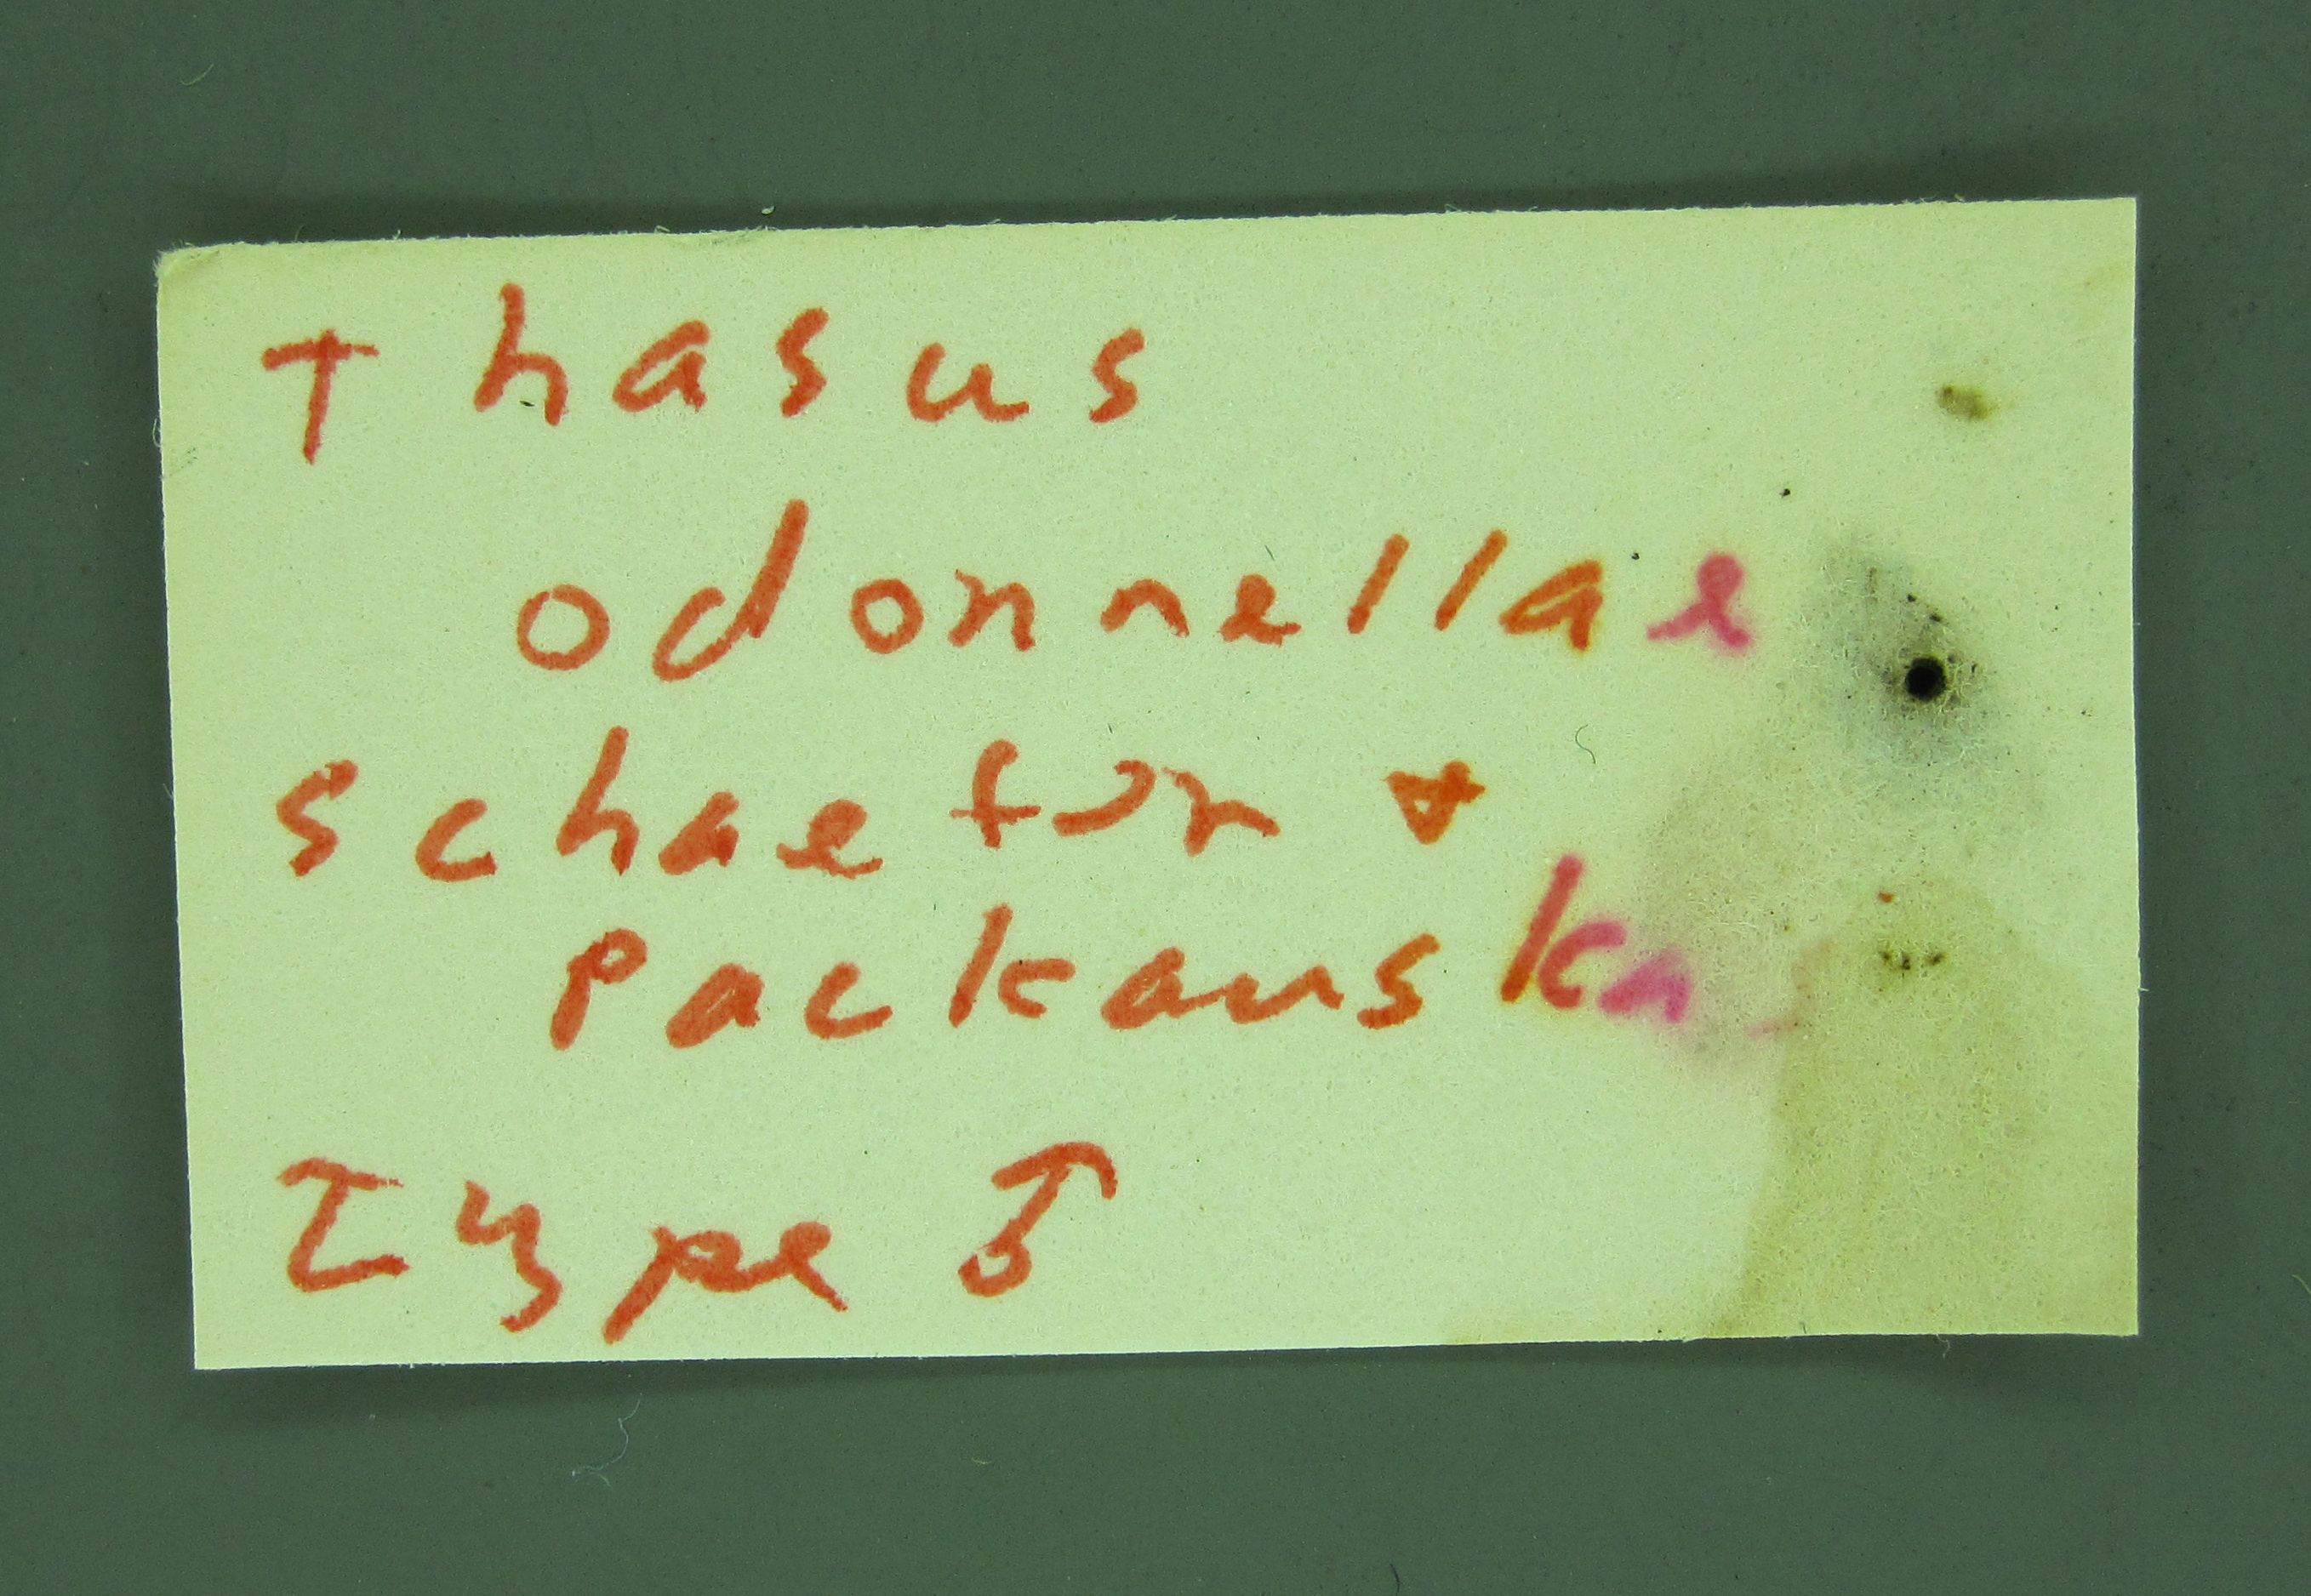 Thasus
odonnellae
Schaefer &
Packauskas
Type ♂